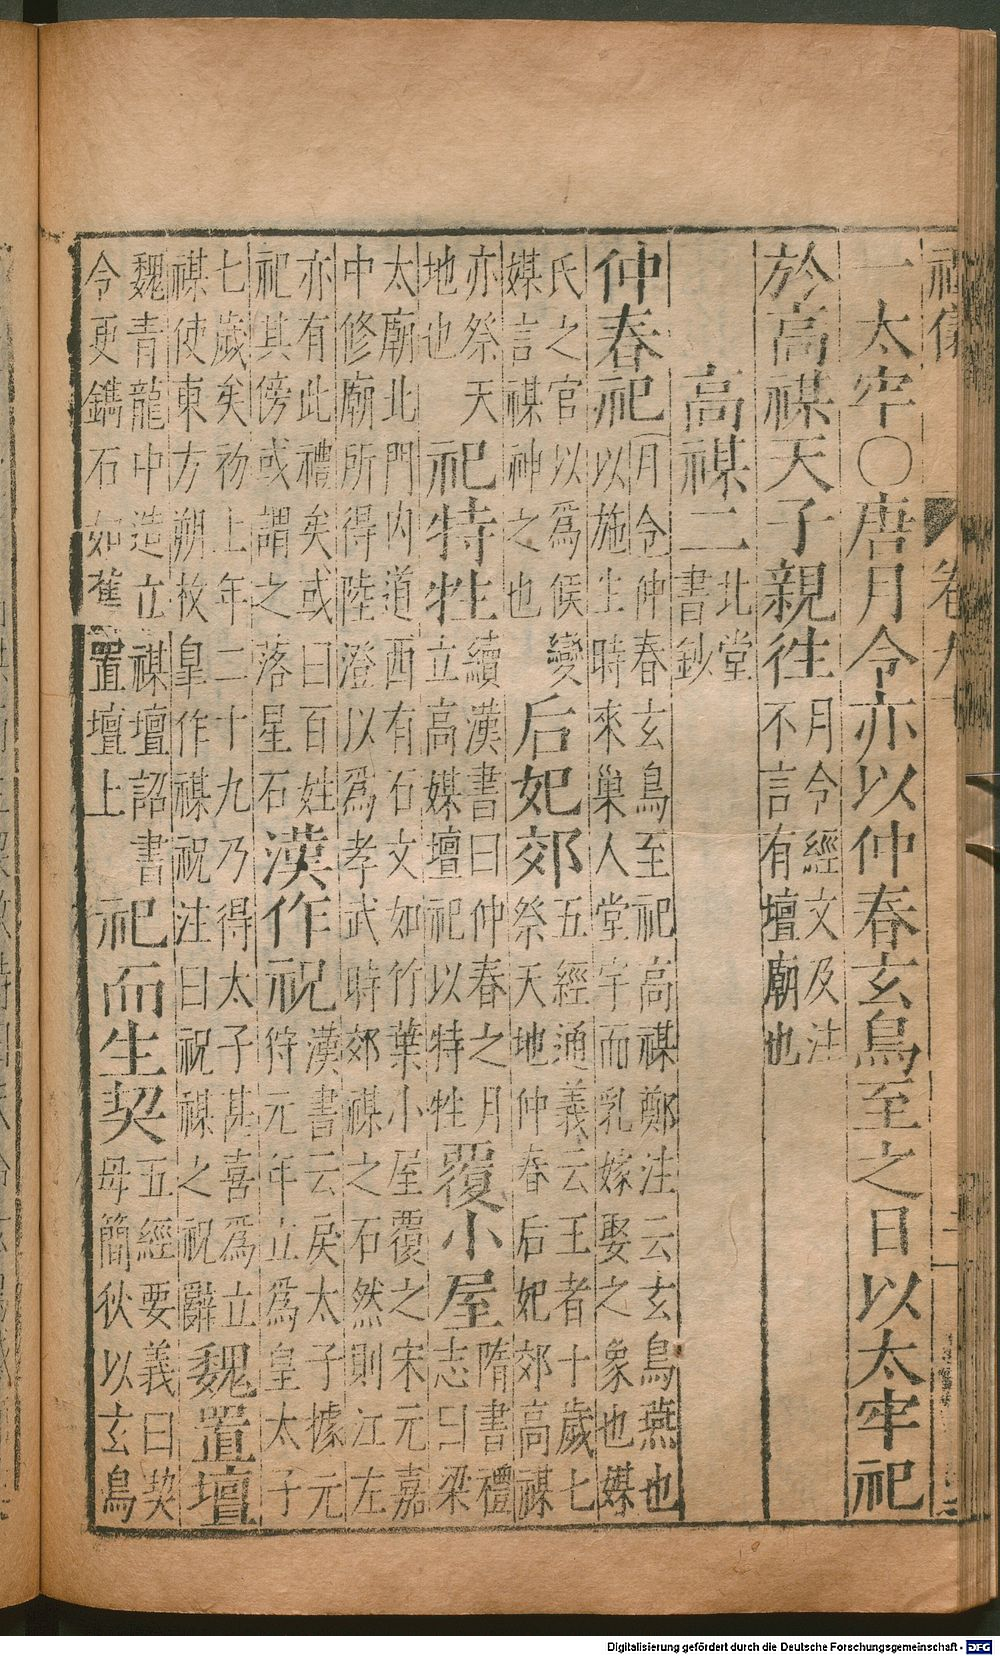 卷九
一太牢○唐月令亦以仲春玄鳥至之日以太牢祀
於高禖天子親往月令經文及注不言有壇廟也
高禖二北堂書鈔
仲春祀月令仲春玄鳥至祀高禖鄭注云玄鳥燕也以施生時來巢人堂宇而乳嫁娶之象也媒
氏之官以爲候變媒言禖神之也后妃郊五經通義云王者十歲七祭天地仲春后妃郊高禖
亦祭天地也祀特牲續漢書曰仲春之月立高媒壇祀以特牲覆小屋隋書禮志曰梁
太廟北門内道西有石文如竹葉小屋覆之宋元嘉中修廟所得陸澄以爲孝武時郊禖之石然則江左
亦有此禮矣或曰百姓祀其傍或謂之落星石漢作祝漢書云戾太子據元狩元年立爲皇太子
七歲矣初上年二十九乃得太子甚喜爲立禖使東方朔枚皐作禖祝注曰祝禖之祝辭魏置壇
魏青龍中造立禖壇詔書令更鐫石如舊置壇上祀而生契五經要義曰契母簡狄以玄鳥
Digitalisierung gefördert durch die Deutsche Forschungsgemeinschaft - DFG